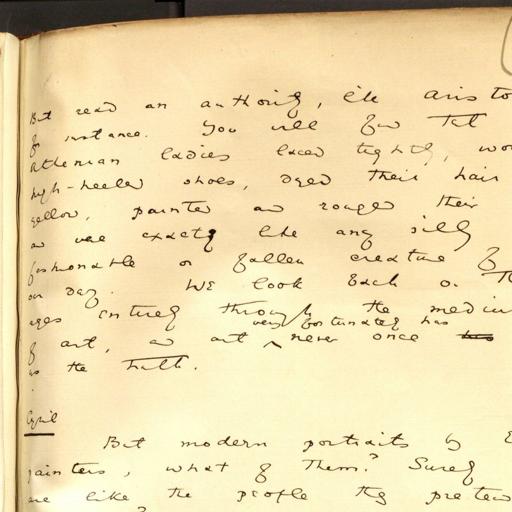 But read an authority, like Aristo
for instance. You will find that
Athenian ladies laced tightly, wor
high-heeled shoes, dyed their hair
yellow, painted and rouged their
and were exactly like any silly
fashionable or fallen creature of
our day. We look back on th
ages entirely through the medium
very fortunately has
of art, and art ^ never once has
us the truth.
Cyril
But modern portraits by E
painters, what of them? Surely
are like the people they preten